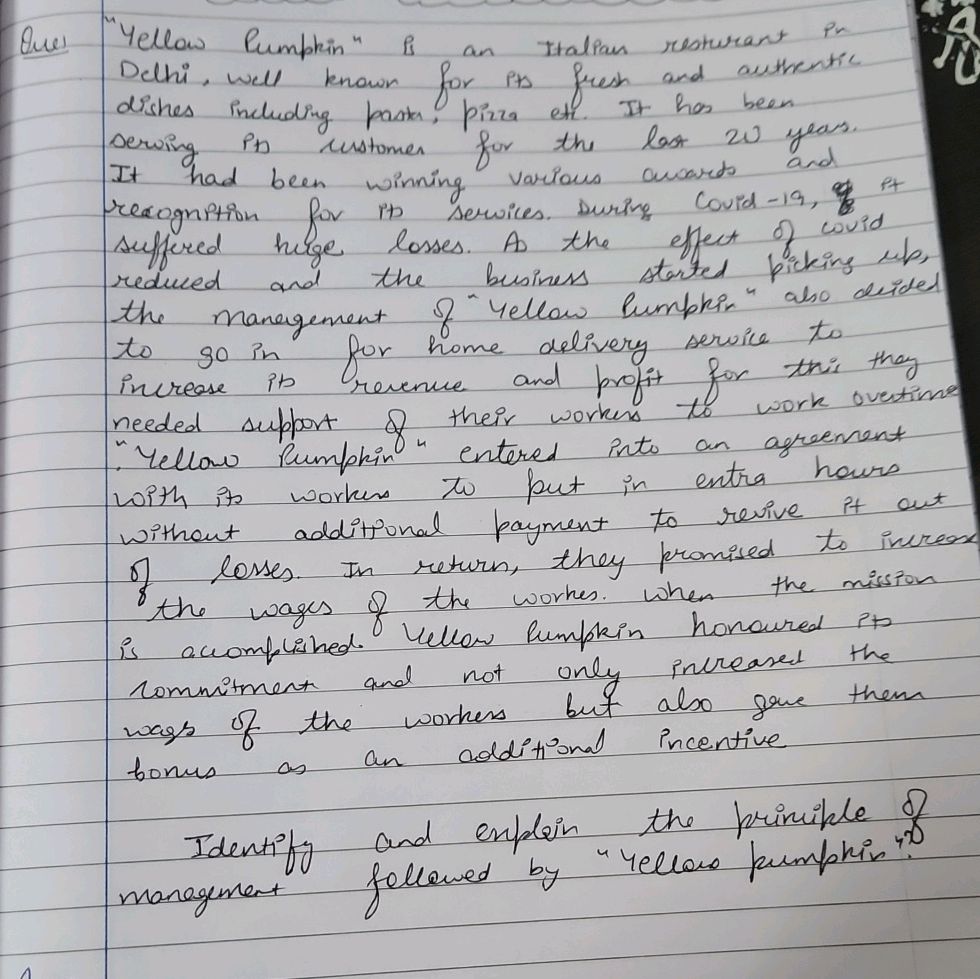 Ques "Yellow Pumpkin" is an Italian resturant in
Delhi, well known for its fresh and authentic
dishes including pasta, pizza etc. It has been
serving its customer for the last 20 years.
It had been winning various awards and
recognition for its services. During Covid-19, it
suffered huge losses. As the effect of covid
reduced and the business started picking up,
the management of "Yellow Pumpkin" also decided
to go in for home delivery service to
increase its revenue and profit for this they
needed support of their workers to work overtime
. "Yellow Pumpkin" entered into an agreement
with its workers to put in extra hours
without additional payment to revive it out
of losses. In return, they promised to increase
the wages of the workes. When the mission
is accomplished. Yellow Pumpkin honoured its
commitment and not only increased the
wags of the workers but also gave them
bonus as an additional incentive
Identify and explain the principle of
management followed by "Yellow pumpkin"?